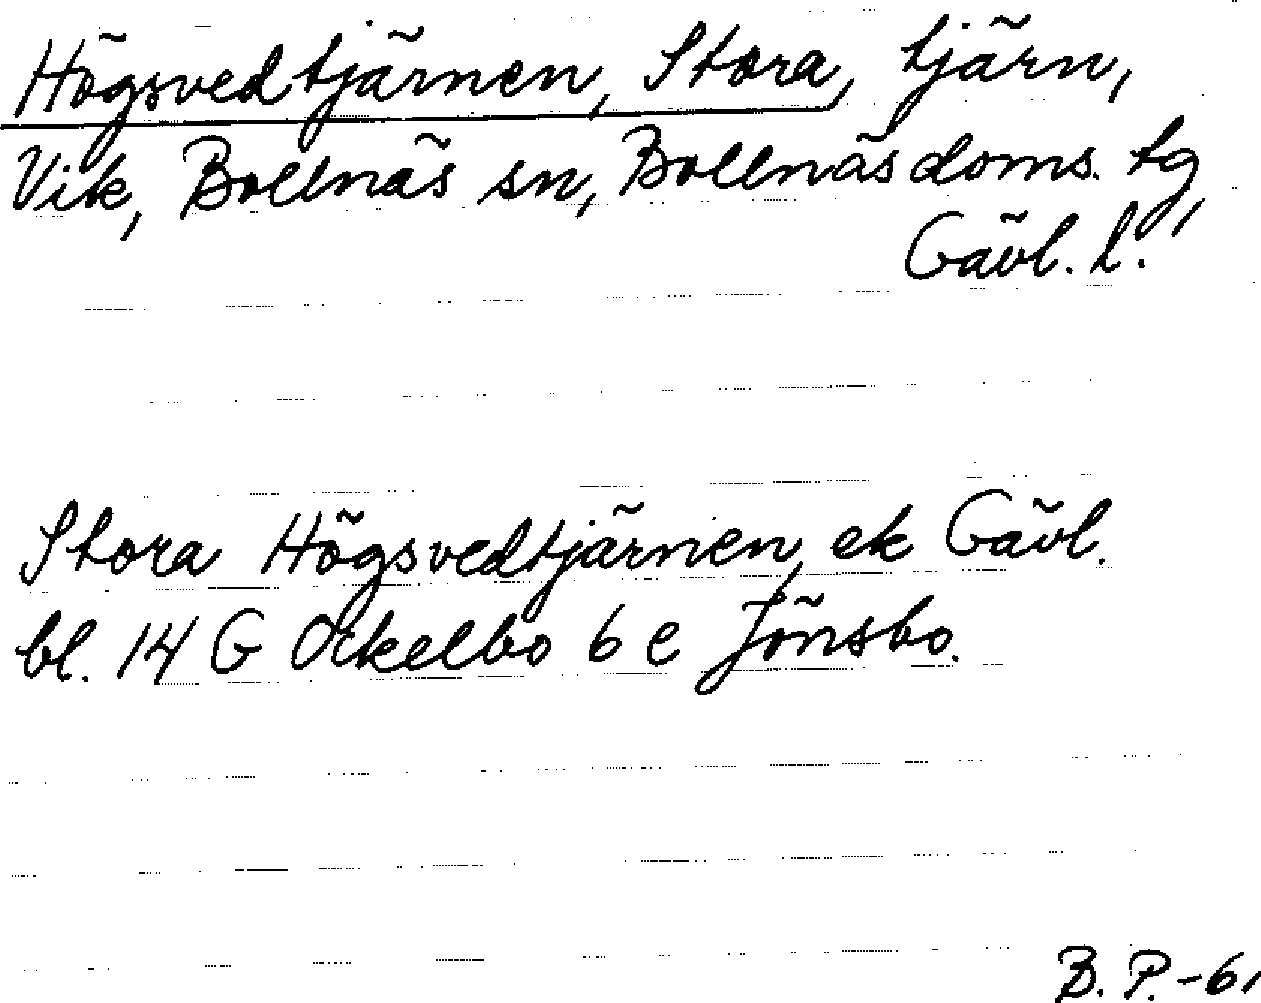 Högsvedtjärnen, Stora, tjärn,
Vik, Bollnäs sn, Bollnäs doms. tg,
Gävl. l.
Stora Högsvedtjärnen, ek Gävl.
bl. 14 G Ockelbo 6 e Jönsbo.
B. P. -61